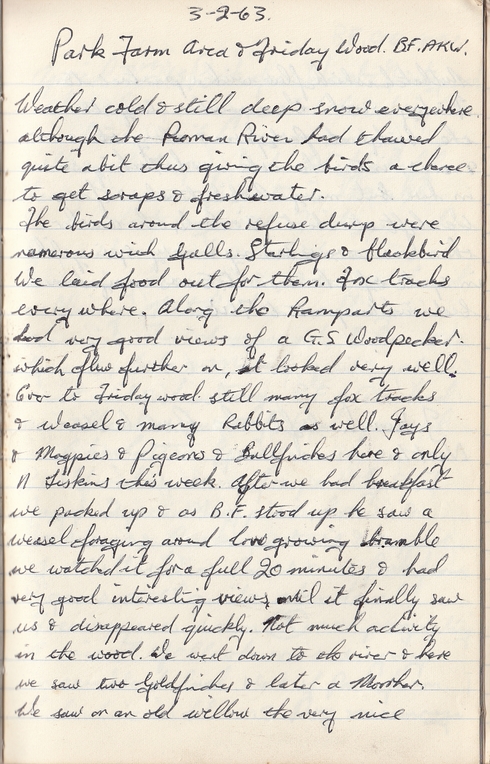 3-2-63.
Park Farm Area & Friday Wood. B.F. AKW.
Weather cold & still deep snow everywhere
although the Roman River had thawed
quite a bit thus giving the birds a chance
to get scraps & freshwater.
The birds around the refuse dump were
numerous with Gulls. Starlings & Blackbird
We laid food out for them. Fox tracks
everywhere. Along the Ramparts we
had very good views of a G.S Woodpecker.
which flew further on, it looked very well.
Over to Friday wood still many fox tracks
& Weasel & many Rabbits as well. Jays
& Magpies & Pigeons & Bullfinches here & only
11 Siskins this week. After we had breakfast
we packed up & as B.F. stood up he saw a
weasel foraging around low growing bramble
we watched it for a full 20 minutes & had
very good interesting views until it finally saw
us & disappeared quickly. Not much activity
in the wood. We went down to the river & here
we saw two Goldfinches & later a Moorhen.
We saw on an old willow the very nice